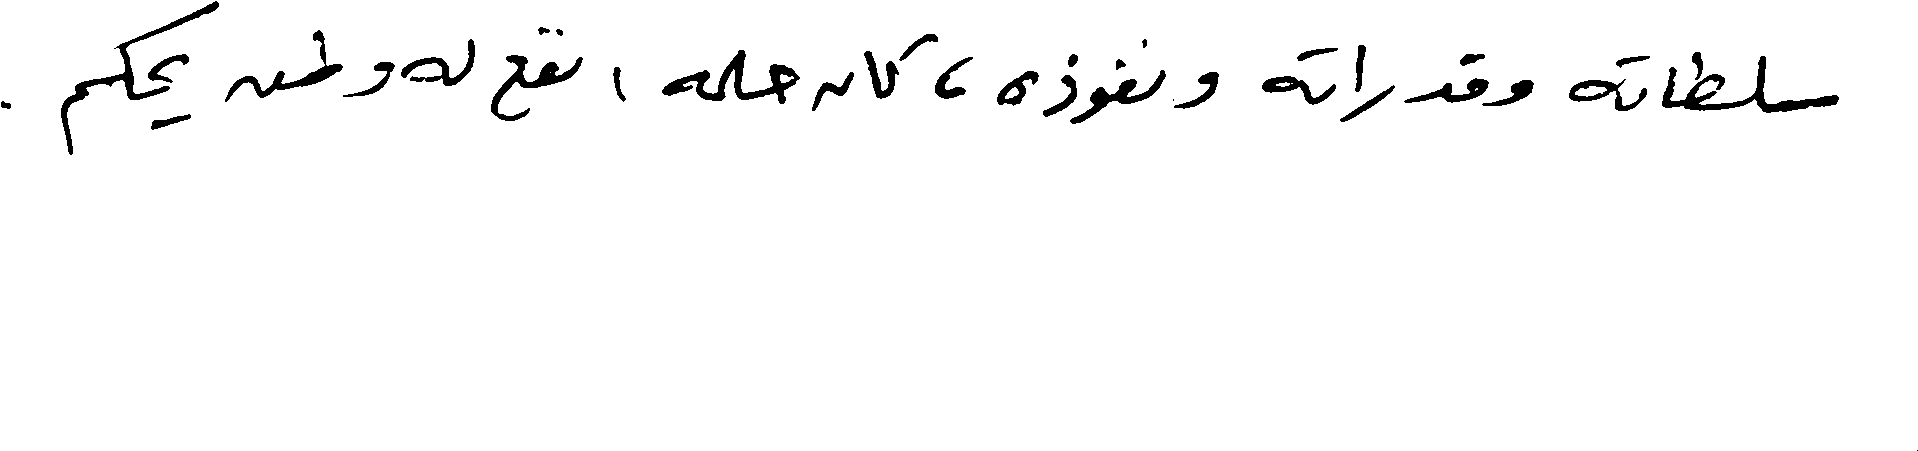 سلطاته وقدراته ونفوذه ، كان حلمه ان تقع له وطن يحكم .